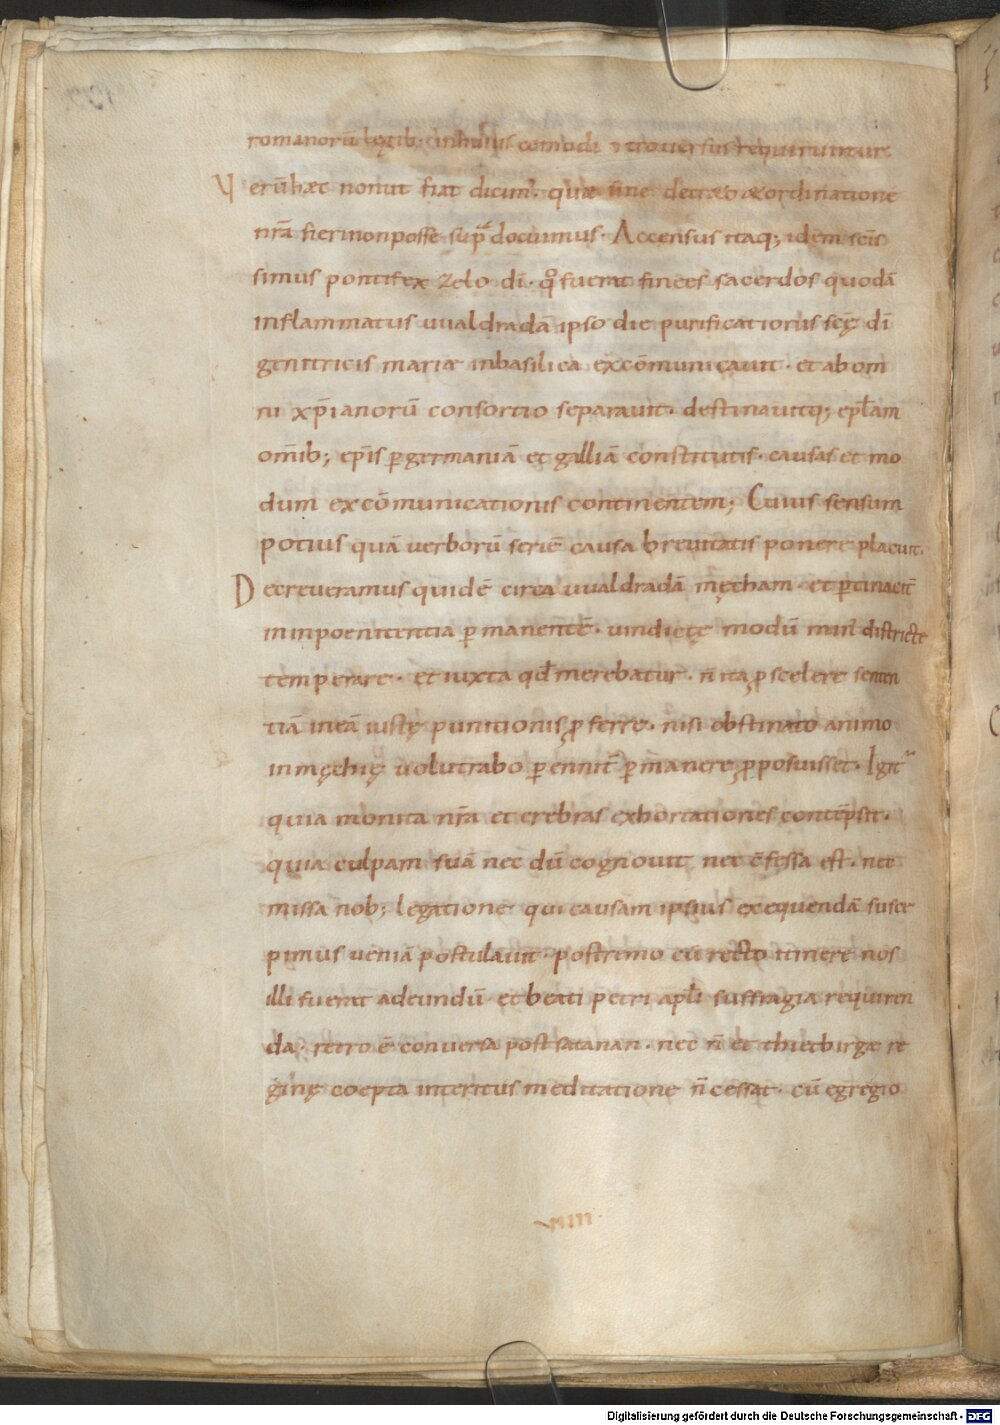 romanorū legib; in huius comodi ɔtrouersiis requiruntur
Verū hæc non ut fiat dicim'. quæ sine decræto & ordinatione
nr̄a fieri non posse sup̄ docuimus. Accensus itaq; idem sc̄is
simus pontifex zelo dī. q̊ fuerat finees sacerdos quodā
inflammatus uualdradā ipso die purificationis scę dī
genitricis mariæ in basilica excōmunicauit. et ab om
ni xp̄ianorū consortio separauit. destinauitq; epl̄am
om̄ib; ep̄is p germaniā et galliā constitutis. causas et mo
dum excōmunicationis continentem; Cuius sensum
potius quā uerborū seriē causa breuitatis ponere placuit.
Decreueramus quidē circa uualdradā męcham. et ptinacit̄
in inpoenitentia pmanentē. uindictę modū min' districte
temperare. et iuxta qđ merebatur. n̄ ita p scelere senten
tiā in eā iustę punitionis pferre. nisi obstinato animo
in męchię uolutabro pennit̄ pmanere pposuisset. Igit̄
quia monita nr̄a et crebras exhortationes contēpsit.
quia culpam suā nec dū cognouit nec c̄fessa est. nec
missa nob; legatione qui causam ipsius exequendā susce
pimus ueniā postulauit. postremo cū recto itinere nos
illi fuerat adeundū et beati petri apl̄i suffragia requiren
da. retro ē conuersa post satanan. nec n̄ et thietbirgæ re
ginę coepta interitus meditatione n̄ cessat. cū egregio
VIIII.
Digitalisierung gefördert durch die Deutsche Forschungsgemeinschaft - DFG